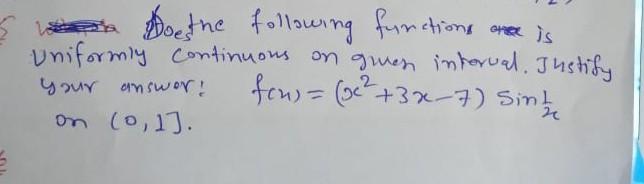 Does the following functions is
Uniformly Continuous on given interval. Justify
your answer! f(x) = (x²+3x-7) Sin 1/x
on (0,1].